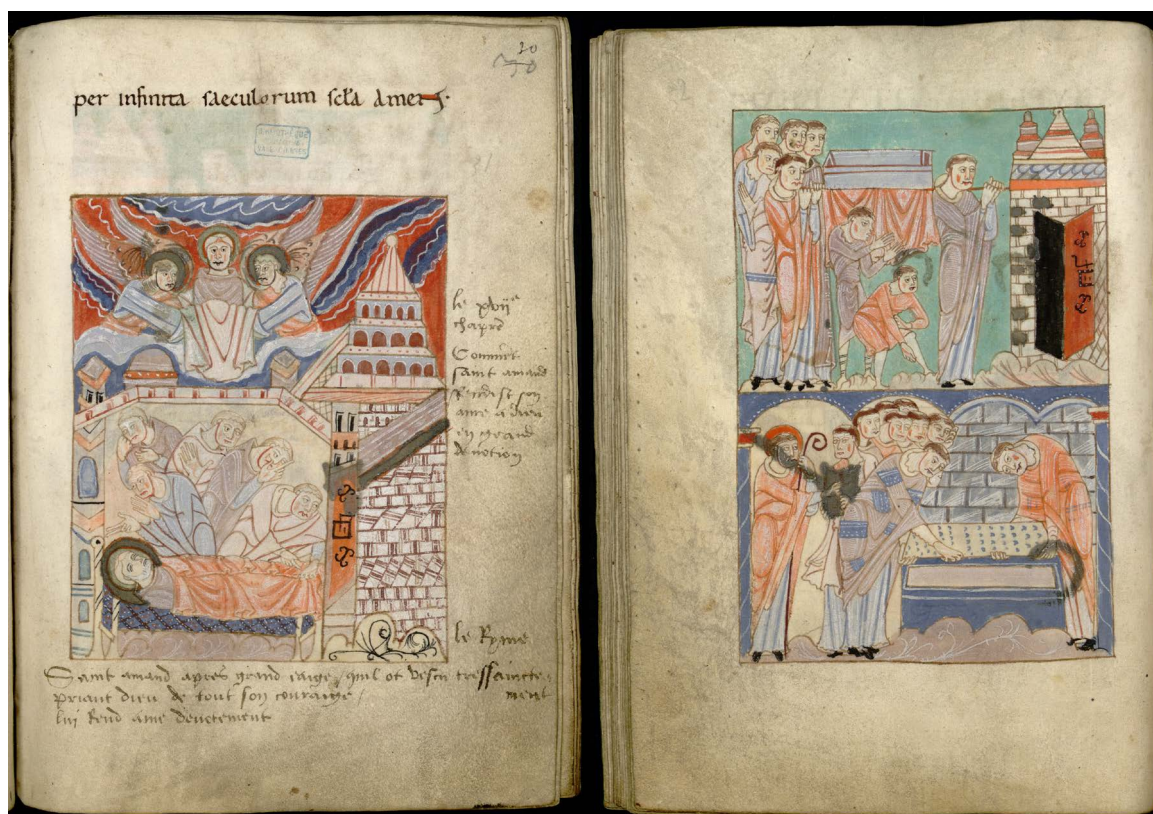 20
per infinita saeculorum scła amen.
le xvii^e
chapr̄e
Comment
saint amand
Rendist son
ame a dieu
en grand
devotion
le Ryme
Saint amand apres grand eaige, quil ot vescu tressainctement
priant dieu de tout son couraige /
lui Rend ame devotement